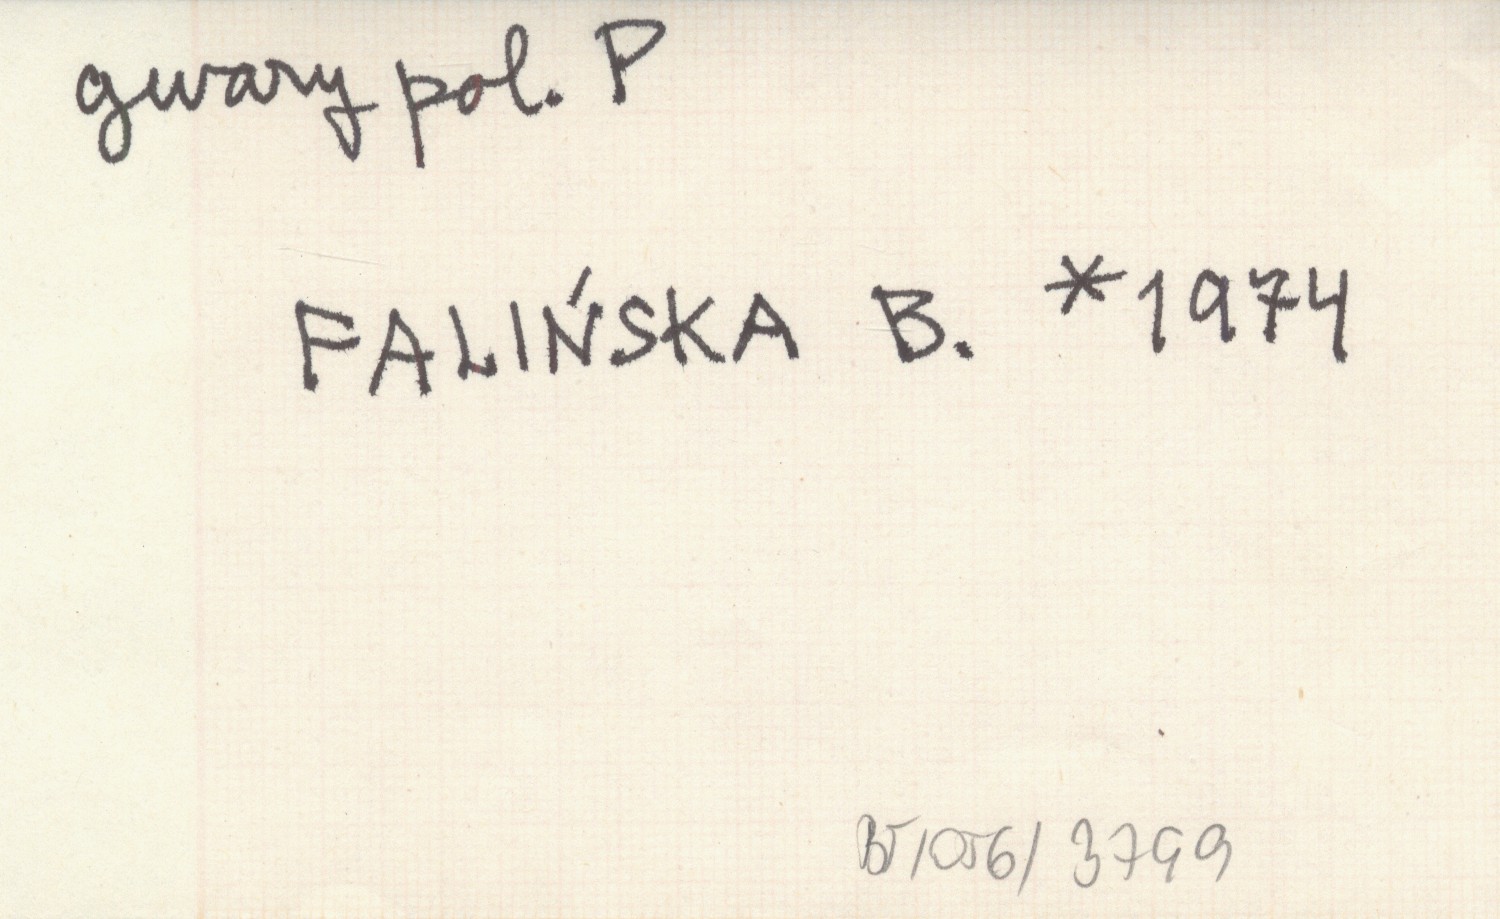 gwary pol. P
FALIŃSKA B. *1974
B5/056/3799